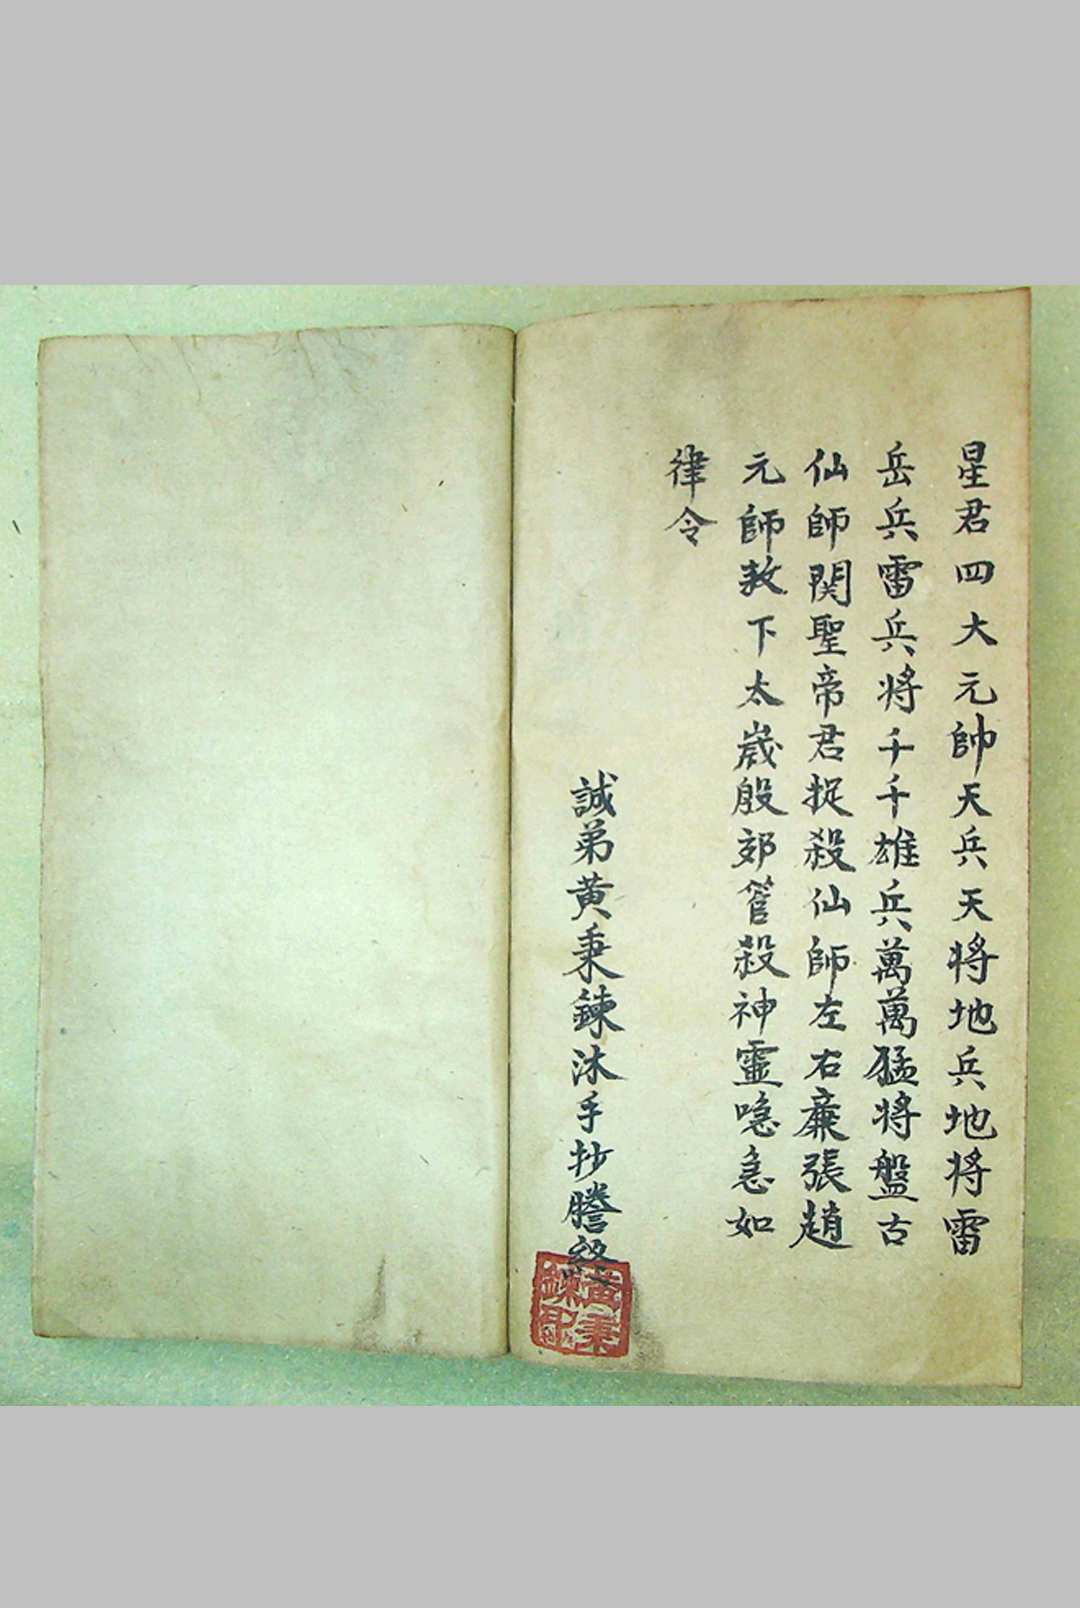 星君四大元帥天兵天将地兵地将雷
岳兵雷兵将千千雄兵萬萬猛将盤古
仙師関聖帝君捉殺仙師左右廉張趙
元師敕下太歲殷郊管殺神靈喼急如
律令
誠弟黄秉鍊沐手抄謄終
黄秉
鍊印